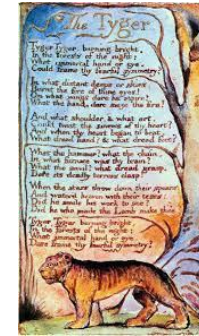 The Tyger
Tyger Tyger, burning bright,
In the forests of the night:
What immortal hand or eye,
Could frame thy fearful symmetry?
In what distant deeps or skies,
Burnt the fire of thine eyes?
On what wings dare he aspire?
What the hand, dare sieze the fire?
And what shoulder, & what art,
Could twist the sinews of thy heart?
And when thy heart began to beat,
What dread hand? & what dread feet?
What the hammer? what the chain,
In what furnace was thy brain?
What the anvil? what dread grasp,
Dare its deadly terrors clasp!
When the stars threw down their spears
And water'd heaven with their tears:
Did he smile his work to see?
Did he who made the Lamb make thee?
Tyger Tyger burning bright,
In the forests of the night:
What immortal hand or eye,
Dare frame thy fearful symmetry?